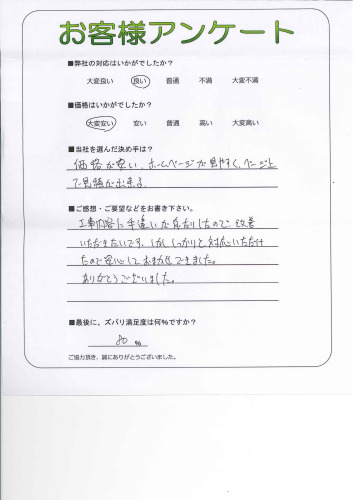 お客様アンケート
■弊社の対応はいかがでしたか？
大変良い 良い 普通 不満 大変不満
■価格はいかがでしたか？
大変安い 安い 普通 高い 大変高い
■当社を選んだ決め手は？
価格が安い、ホームページが見やすく、ページ上
で見積が出来る。
■ご感想・ご要望などをお書き下さい。
工事内容に手違いが有ったりしたので、改善
いただきたいです。しかし、しっかりと対応いただけ
たので安心しておまかせできました。
ありがとうございました。
■最後に、ズバリ満足度は何%ですか？
80 %
ご協力頂き、誠にありがとうございました。